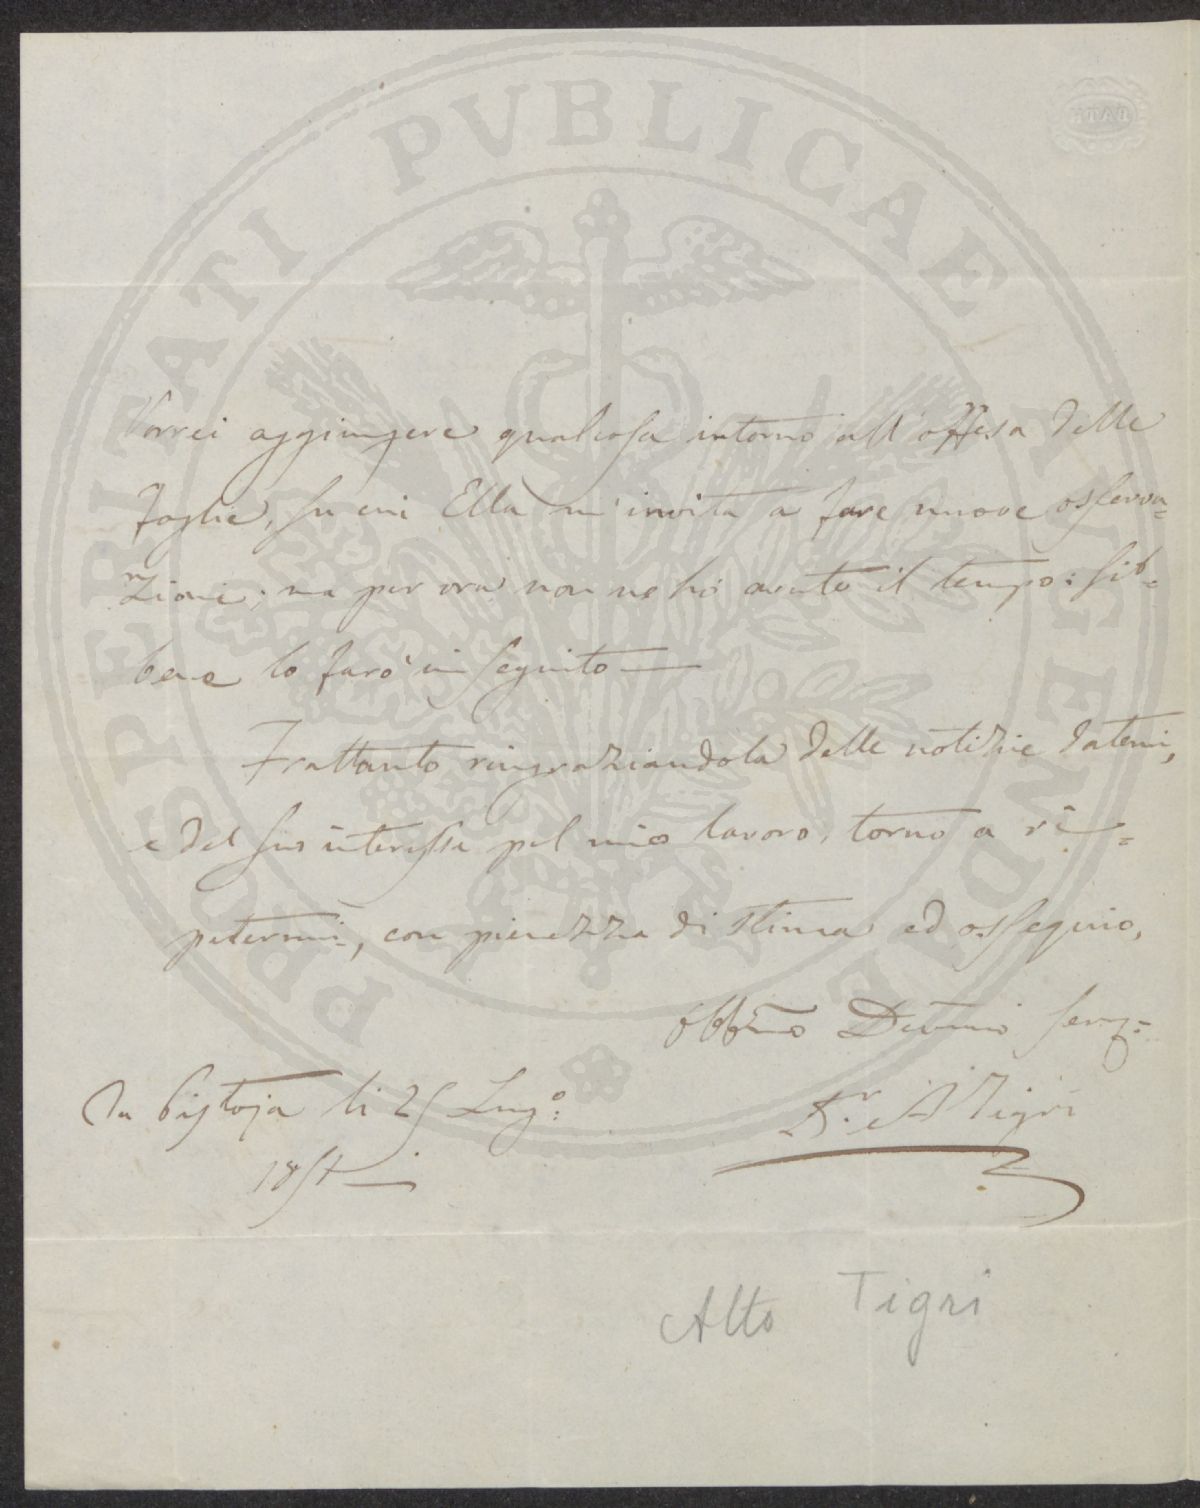 PROSPERITATI PVBLICAE AVGENDAE
BATH
Vorrei aggiungere qualcosa intorno all'offesa delle
foglie, su cui Ella m'invita a fare nuove osserva=
zioni; ma per ora non ne hò avuto il tempo: sib=
bene lo farò in seguito —
Frattanto ringraziandola delle notizie datemi,
e del suo interesse pel mio lavoro, torno a ri=
petermi, con pienezza di stima ed ossequio,
Obbmo Devmo Serv:
Da Pistoja li 25 Lugo:
Dr. A Tigri
Atto Tigri